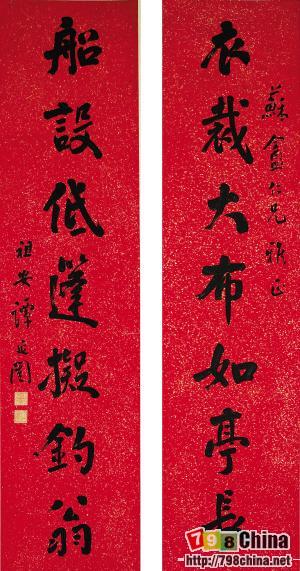 蘇盦仁兄雅正
衣裁大布如亭長
船設低篷擬釣翁
祖安譚延闓
798China
http://798china.net